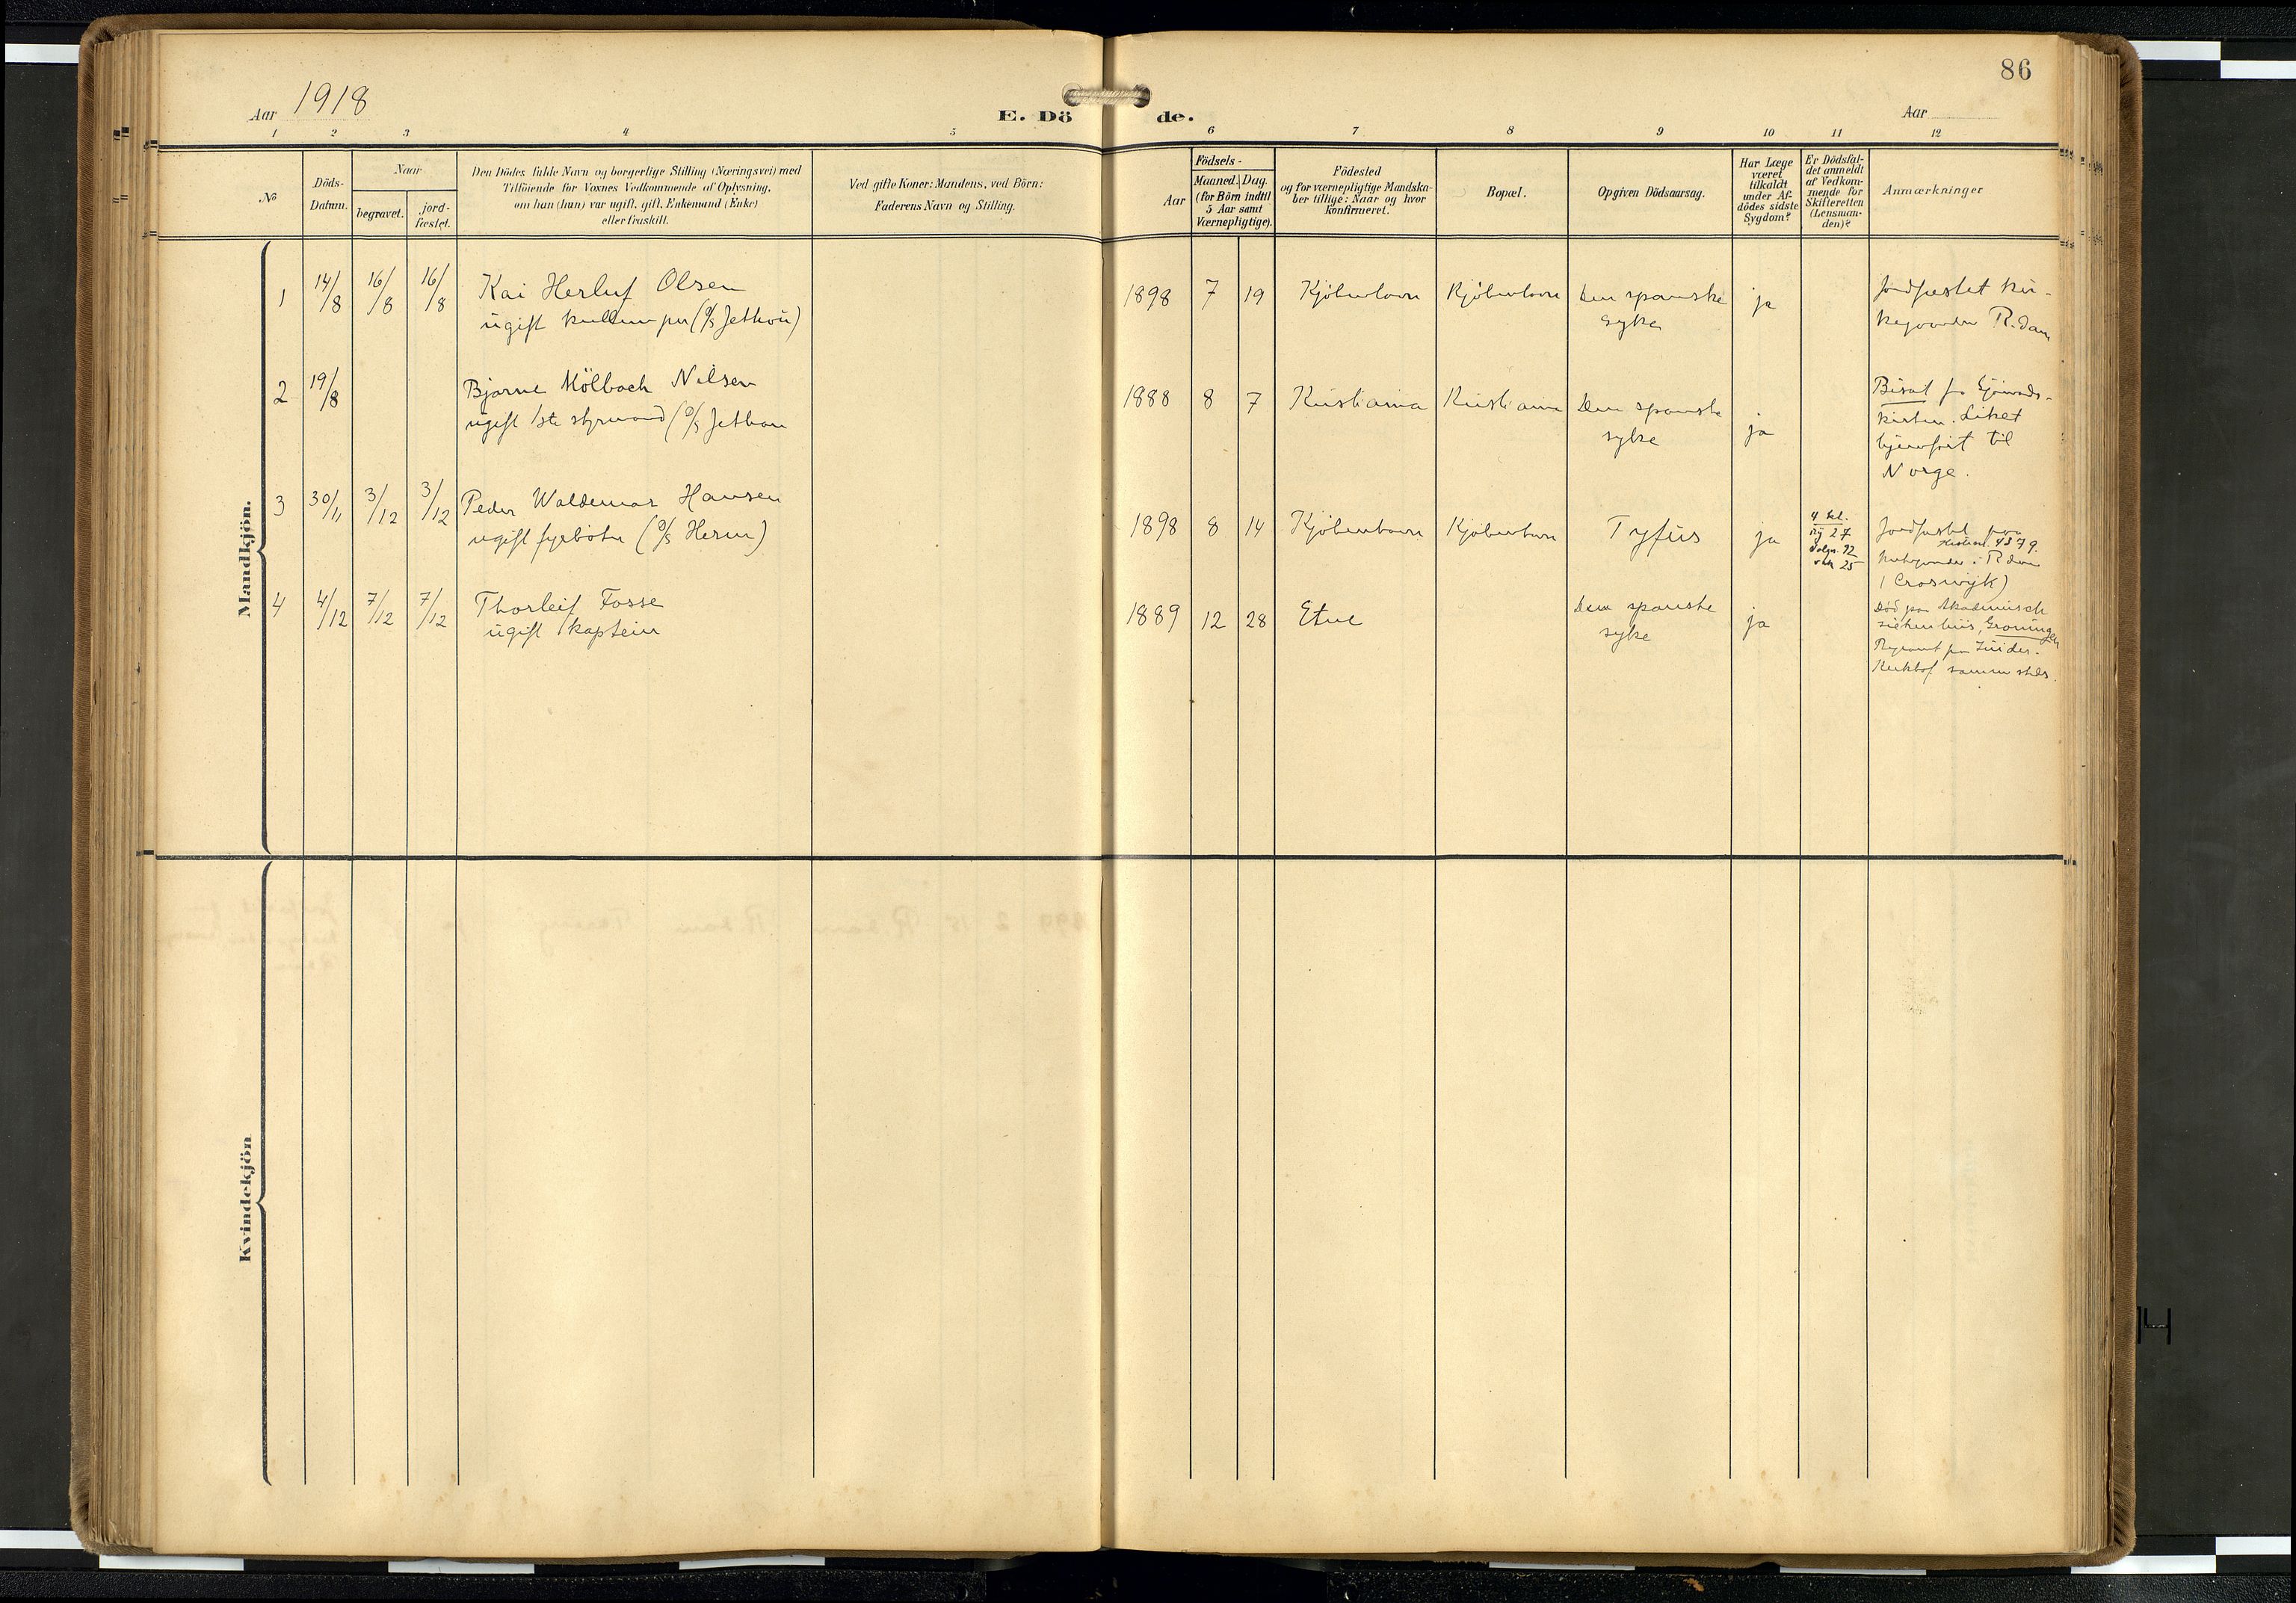 86
Aar 1918
E. Dö de.
Aar
1 2 3 4 5 6 7 8 9 10 11 12
No
Döds-
Datum.
Naar
begravet.
jord-
fæstet.
Den Dödes fulde Navn og borgerlige Stilling (Næringsvei) med
Tilföiende for Voxnes Vedkommende af Oplysning,
om han (hun) var ugift, gift, Enkemand (Enke)
eller fraskilt.
Ved gifte Koner: Mandens, ved Börn:
Faderens Navn og Stilling.
Födsels-
Aar
Maaned. Dag.
(for Börn indtil
5 Aar samt
Værnepligtige).
Födested
og for værnepligtige Mandska-
ber tillige: Naar og hvor
konfirmeret.
Bopæl.
Opgiven Dödsaarsag.
Har Læge
været
tilkaldt
under Af-
dödes sidste
Sygdom?
Er Dödsfal-
det anmeldt
af Vedkom-
mende for
Skifteretten
(Lensman-
den)?
Anmærkninger
Mandkjön.
1 14/8 16/8 16/8 Kai Herluf Olsen
ugift kullemper (D/S Jethou)
1898 7 19 Kjöbenhavn Kjöbenhavn Den spanske
syke
ja
Jordfæstet kir-
kegaarden R.dam
2 19/8 Bjarne Mölbach Nilsen
ugift 1ste styrmand (D/S Jethou
1888 8 7 Kristiania Kristiania Den spanske
syke
ja
Bisat fra Sjömands-
kirken. Liket
hjemfört til
Norge.
3 30/11 3/12 3/12 Peder Waldemar Hansen
ugift fyrböter (D/S Herm)
1898 8 14 Kjöbenhavn Kjöbenhavn Tyfus ja
4 kl.
rij 27
volgn. 92
vak 25
Jordfæstet paa
4379.
kirkegaarden i R.dam
(Croswijk)
4 4/12 7/12 7/12 Thorleif Fosse
ugift kaptein
1889 12 28 Etne Den spanske
syke
ja
Död paa Akademisch
ziekenhuis, Groningen
Begravet paa Zuider-
Kerkhof sammesteds.
Kvindekjön